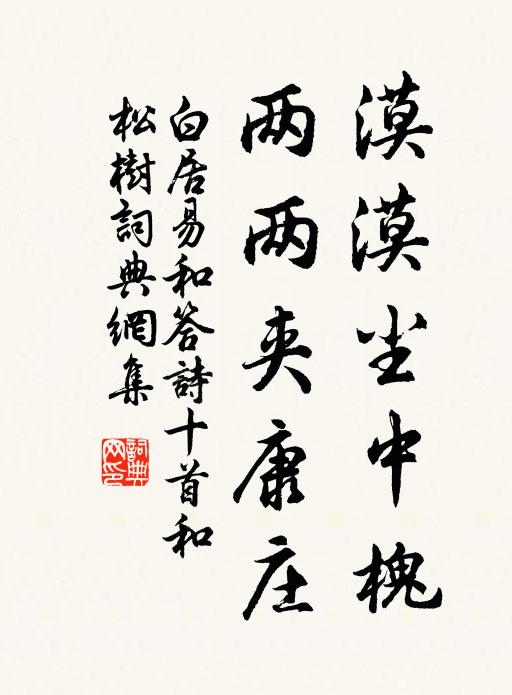 漠漠尘中槐
两两夹康庄
白居易和答詩十首和
松樹詞典網集
詞典网印